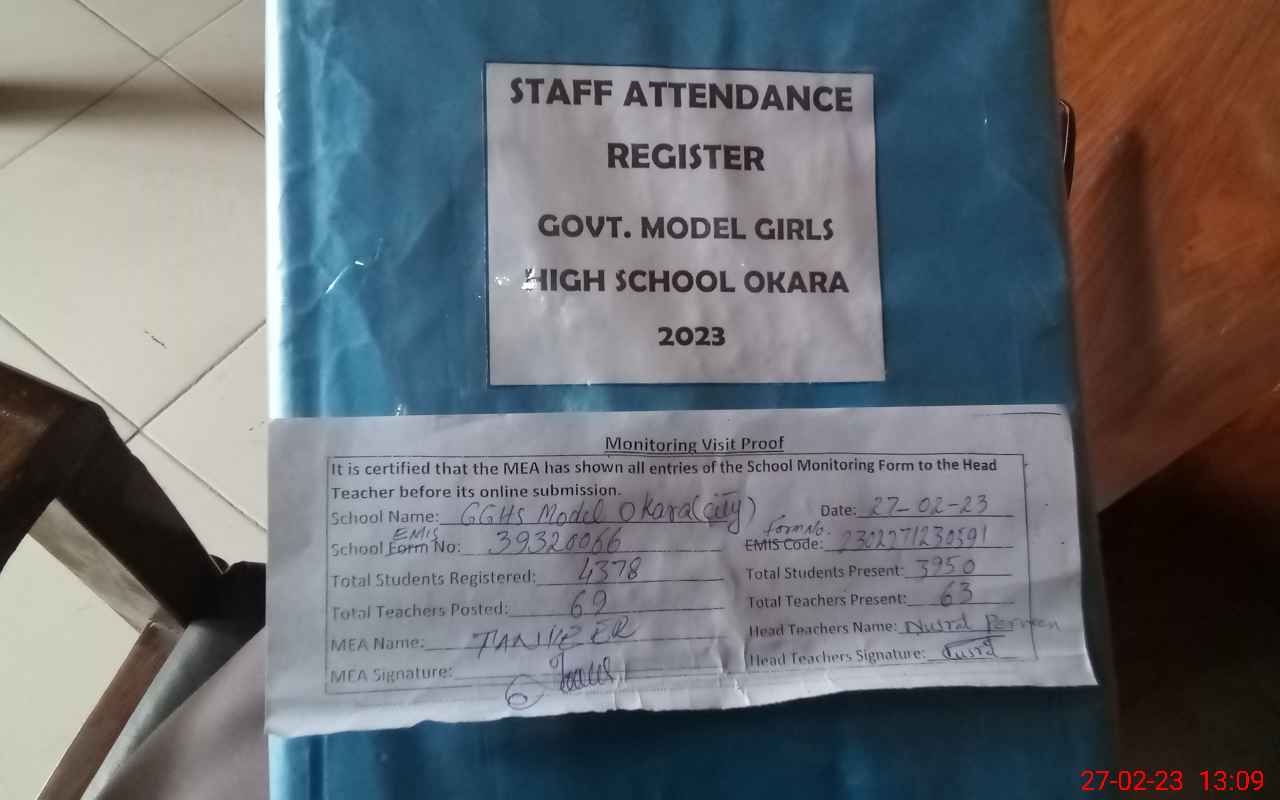 STAFF ATTENDANCE
REGISTER
GOVT. MODEL GIRLS
HIGH SCHOOL OKARA
2023
Monitoring Visit Proof
It is certified that the MEA has shown all entries of the School Monitoring Form to the Head
Teacher before its online submission.
School Name: GGHS Model Okara (city) Date: 27-02-23
EMIS Form No.
School Form No: 39320066 EMIS Code: 2302271230591
Total Students Registered: 4378 Total Students Present: 3950
Total Teachers Posted: 69 Total Teachers Present: 63
MEA Name: TANVEER Head Teachers Name:
MEA Signature: Head Teachers Signature:
6
27-02-23 13:09